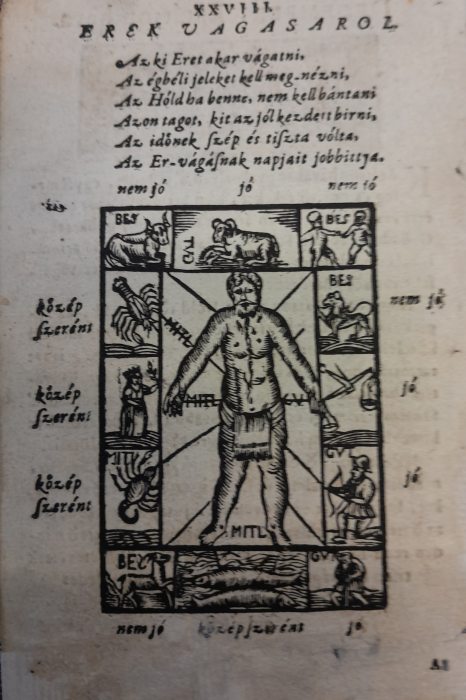 XXVIII.
EREK VAGASAROL
Az ki Eret akar vágatni,
Az égbéli jeleket kell meg-nézni,
Az Hóld ha benne, nem kell bántani
Azon tagot, kit az jól kezdett birni,
Az idönek szép és tiszta vólta,
Az Er-vágásnak napjait jobbittya.
nem jó jó nem jó
BES TVD BES
BES
kôzép szerént
nem jó
MITL
kôzép szerént
MITL GV
jó
kôzép szerént
GV
jó
MITL
BES
nem jó kôzép szerént jó